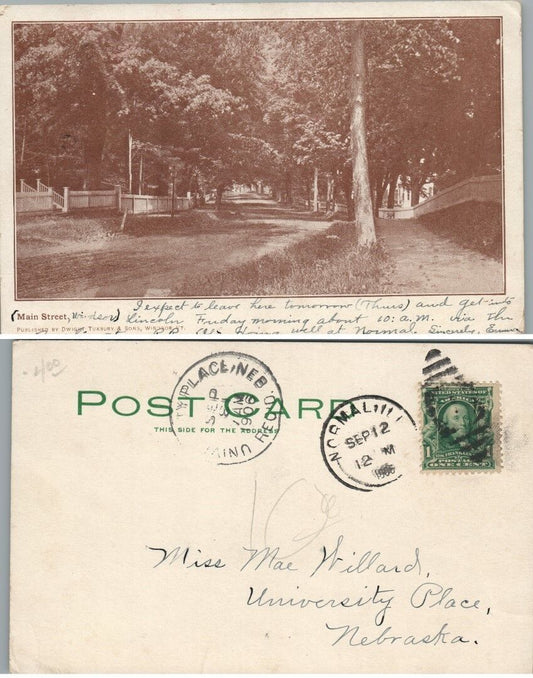 I expect to leave here tomorrow (Thurs) and get into
(Main Street, Windsor) Lincoln Friday morning about 10: A.M. via the
PUBLISHED BY DWIGHT TUXBURY & SONS, WINDSOR, VT. well at Normal. Sincerely,
.100
POST CARD
THIS SIDE FOR THE ADDRESS
PLACE, NEB
SEP
AM
1906
REC'D
UNIV
NORMAL, ILL
SEP 12
12 M
1906
UNITED STATES OF AMERICA
1 ONE CENT 1
Miss Mae Willard,
University Place,
Nebraska.